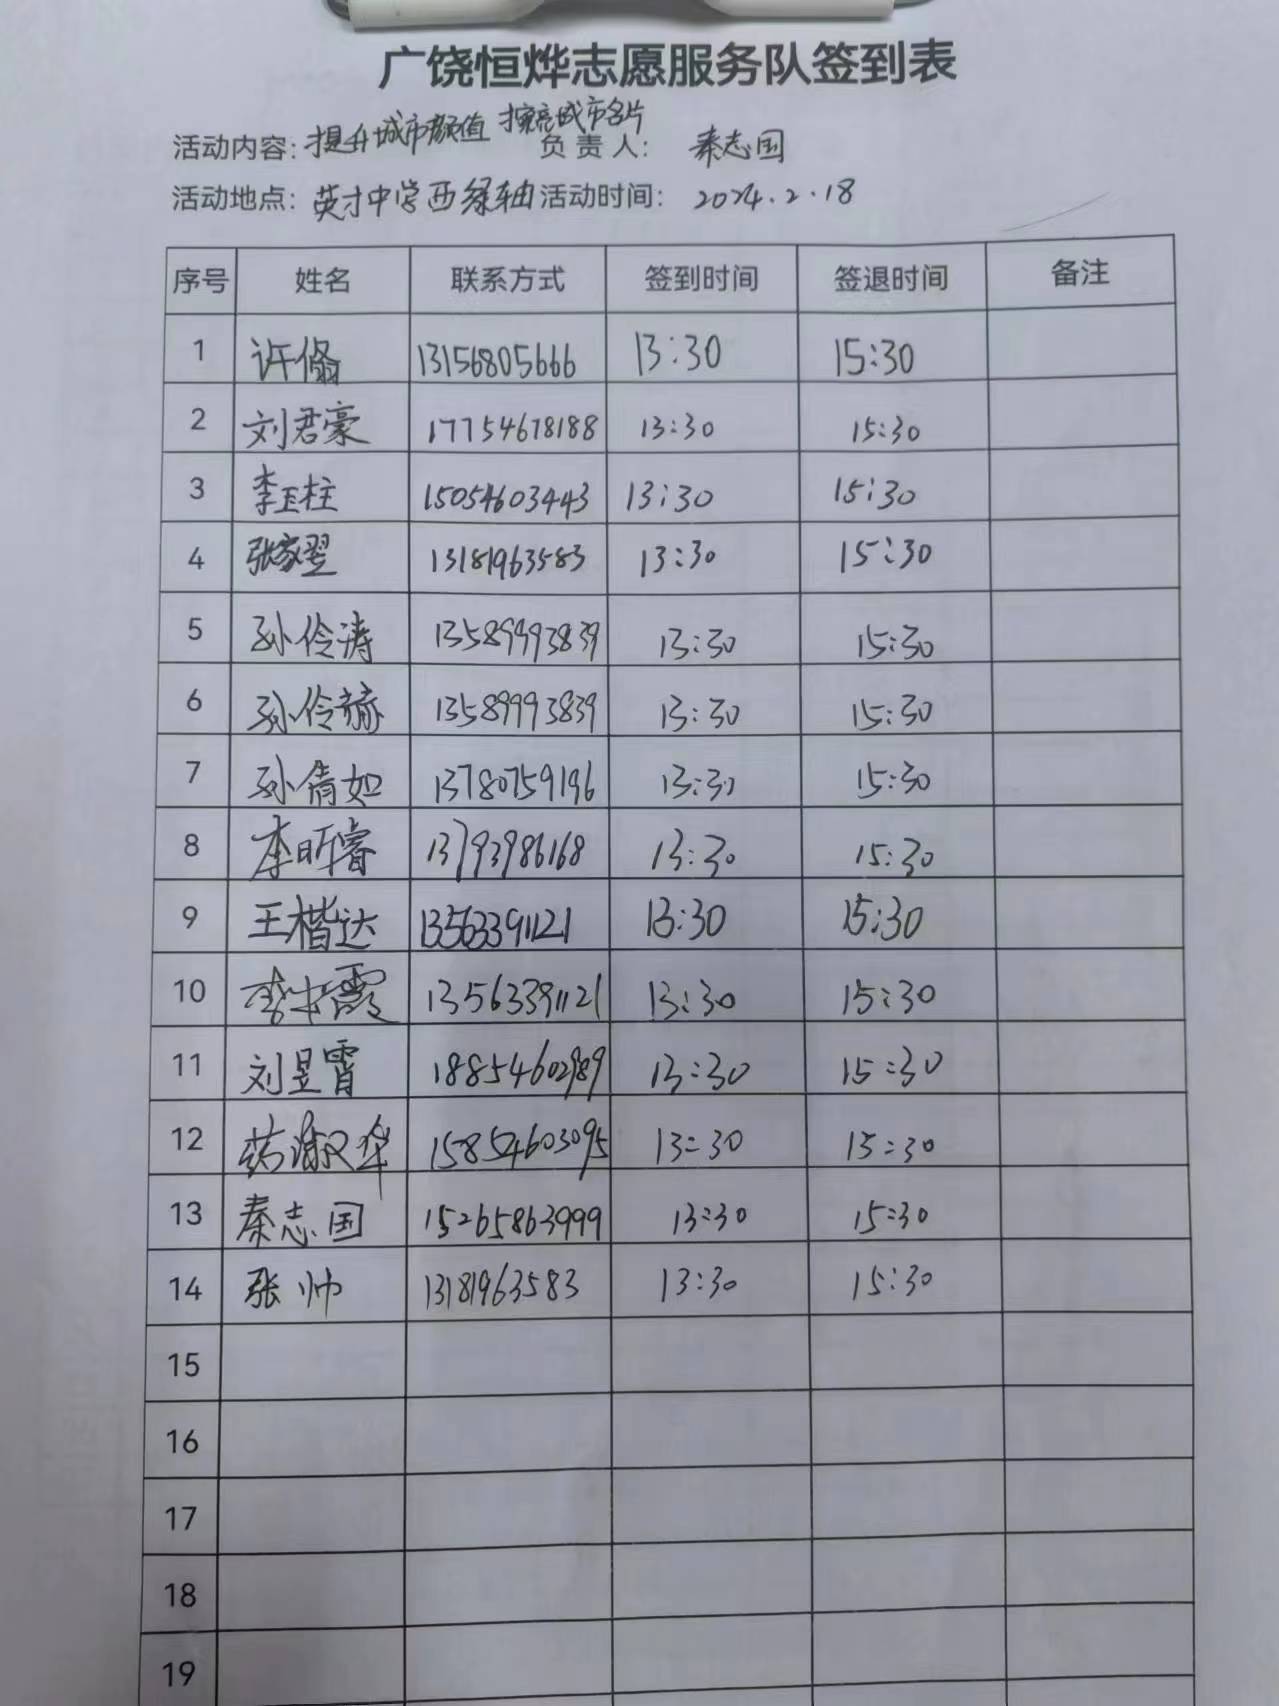 广饶恒烨志愿服务队签到表
活动内容: 提升城市颜值 擦亮城市名片 负责人: 秦志国
活动地点: 英才中学西绿轴 活动时间: 2024.2.18
序号 姓名 联系方式 签到时间 签退时间 备注
1 许翛 13156805666 13:30 15:30
2 刘君豪 17754678188 13:30 15:30
3 李玉柱 15054603443 13:30 15:30
4 张家翌 13181963583 13:30 15:30
5 孙伶涛 13589993839 13:30 15:30
6 孙伶 13589993839 13:30 15:30
7 孙倩如 13780759196 13:30 15:30
8 李昕睿 13793986168 13:30 15:30
9 王楷达 13563391121 13:30 15:30
10 李霞 13563391121 13:30 15:30
11 刘昱霄 18854602989 13:30 15:30
12 淑华 15854603095 13:30 15:30
13 秦志国 15265863999 13:30 15:30
14 张帅 13181963583 13:30 15:30
15
16
17
18
19